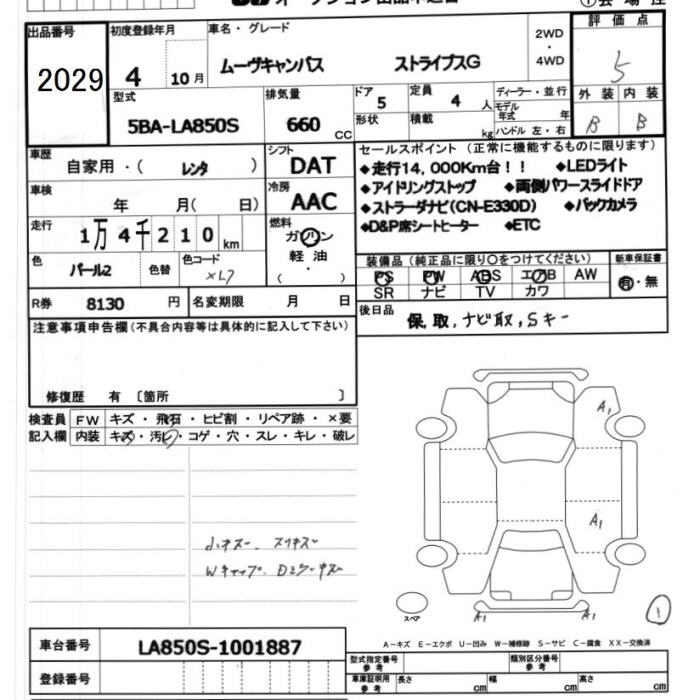 出品番号
2029
初度登録年月
4 10月
車名・グレード
ムーヴキャンバス ストライプスG
2WD
・
4WD
評価点
5
型式
5BA-LA850S
排気量
660 CC
ドア
5
形状
定員
4 人
積載
kg
ディーラー・並行
モデル年式 年
ハンドル 左・右
外装 内装
B B
車歴
自家用・( レンタ )
シフト
DAT
車検
年 月( 日)
冷房
AAC
走行
1万4千210km
燃料
ガソリン
軽油
・
( )
色
パール2
色替
色コード
R券 8130 円
名変期限 月 日
セールスポイント(正常に機能するものに限ります)
◆走行14,000Km台!! ◆LEDライト
◆アイドリングストップ ◆両側パワースライドドア
◆ストラーダナビ(CN-E330D) ◆バックカメラ
◆D&P席シートヒーター ◆ETC
装備品(純正品に限り○をつけてください)
新車保証書
PS PW ABS エアB AW
SR ナビ TV カワ
有・無
後日品
保,取,ナビ取,Sキー
注意事項申告欄(不具合内容等は具体的に記入して下さい)
修復歴 有 〔箇所 〕
検査員記入欄
FW キズ・飛石・ヒビ割・リペア跡・×要
内装 キズ・汚レ・コゲ・穴・スレ・キレ・破レ
A1
A1
小キズー、スリキズー
スペア
A1
A1
1
A-キズ E-エクボ U-凹み W-補修跡 S-サビ C-腐食 XX-交換済
車台番号
LA850S-1001887
登録番号
型式指定番号 参考
類別区分番号 参考
車庫証明用 参考
長さ cm
幅 cm
高さ cm